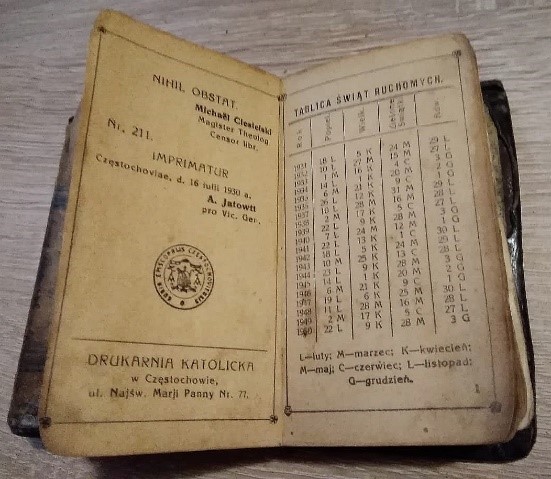 NIHIL OBSTAT.
Michaël Ciesielski
Magister Theolog
Censor libr.
Nr. 211.
IMPRIMATUR
Częstochoviae, d. 16 iulii 1930 a.
A. Jatowtt
pro Vic. Ger.
DRUKARNIA KATOLICKA
w Częstochowie,
ul. Najśw. Marji Panny Nr. 77.
TABLICA ŚWIĄT RUCHOMYCH.
Rok Popiel. Wielk. Zielone Świątki Adw.
1931 18 L 5 K 24 M 29 L
1932 10 L 27 M 15 M
1933 16 K 4 C 3 G
1934 14 L 1 K 20 M 2 G
1935 6 M 21 K 9 C 1 G
1936 26 L 12 K 31 M 29 L
1937 28 M 16 M 28 L
1938 2 M 17 K 5 C 27 L
1939 22 L 9 K 28 M 3 G
1940 7 L 24 M 12 M 1 G
1941 13 K 1 C 30 L
1942 18 L 5 K 24 M 29 L
1943 10 M 25 K 13 C 28 L
1944 23 L 9 K 28 M 3 G
1945 14 L 1 K 20 M 2 G
1946 6 M 21 K 9 C 1 G
1947 19 L 6 K 25 M 30 L
1948 11 L 28 M 16 M 28 L
1949 2 M 17 K 5 C 27 L
1950 22 L 9 K 28 M 3 G
L—luty; M—marzec; K—kwiecień;
M—maj; C—czerwiec; L—listopad;
G—grudzień.
1